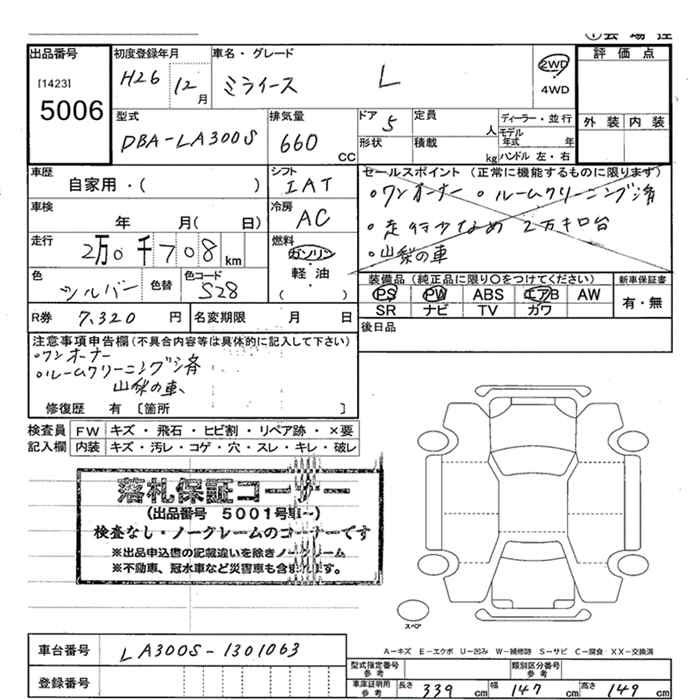 出品番号 初度登録年月 車名・グレード 評価点
[1423] H26 12月 ミライース L 2WD
5006 4WD
型式 排気量 ドア 5 定員 人 ディーラー・並行 外装 内装
DBA-LA300S 660 CC 形状 積載 kg モデル年式 年
ハンドル 左・右
車歴 シフト セールスポイント (正常に機能するものに限ります)
自家用・( ) IAT ○ワンオーナー ○ルームクリーニング済
車検 冷房 ・走行少なめ 2万キロ台
年 月( 日) AC ・山梨の車
走行 2万0千708km 燃料 ガソリン
軽油・
( )
装備品 (純正品に限り○をつけてください) 新車保証書
色 シルバー 色替 色コード S28 PS PW ABS エアB AW 有・無
SR ナビ TV カワ
R券 7,320 円 名変期限 月 日 後日品
注意事項申告欄(不具合内容等は具体的に記入して下さい)
○ワンオーナー
○ルームクリーニング済
山梨の車、
修復歴 有 [箇所 ]
検査員 FW キズ・飛石・ヒビ割・リペア跡・×要
記入欄 内装 キズ・汚レ・コゲ・穴・スレ・キレ・破レ
落札保証コーナー
(出品番号 5001号車~)
検査なし・ノークレームのコーナーです
※出品申込書の記載違いを除きノークレーム
※不動車、冠水車など災害車も含まれます。
スペア
A-キズ E-エクボ U-凹み W-補修跡 S-サビ C-腐食 XX-交換済
車台番号 LA300S-1301063 型式指定番号 参考 類別区分番号 参考
登録番号 車庫証明用 参考 長さ 339 cm 幅 147 cm 高さ 149 cm